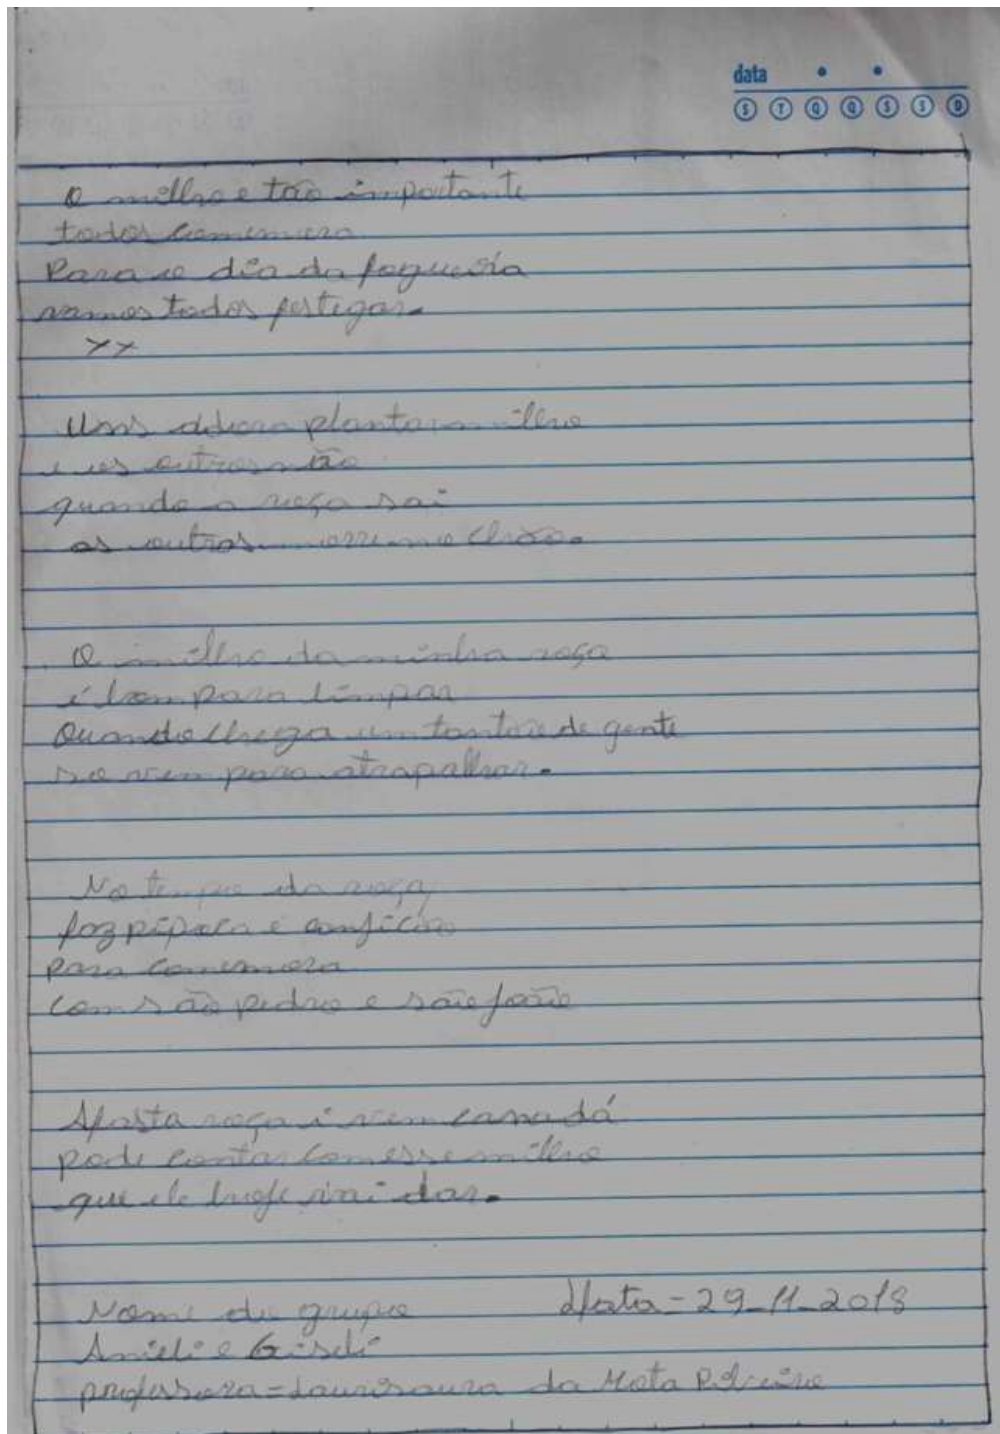 data
S T Q Q S S D
O milho e tão importante
todos comemora
Para o dia da fogueria
vamos todos festegar.
xx
Uns planta milho
e os outros não
quando a roça sai
os outros no chão.
O milho da minha roça
é bom para limpar
Quando chega um tanto de gente
so vem para atrapalhar.
No tempo da roça
faz pipoca e
para comemora
com são pedro e são joão
roça i vem
pode contar com esse milho
que ele hoje vai dar.
Nome du grupo
Data - 29-11-2018
Anieli e Giseli
professora = da Mota